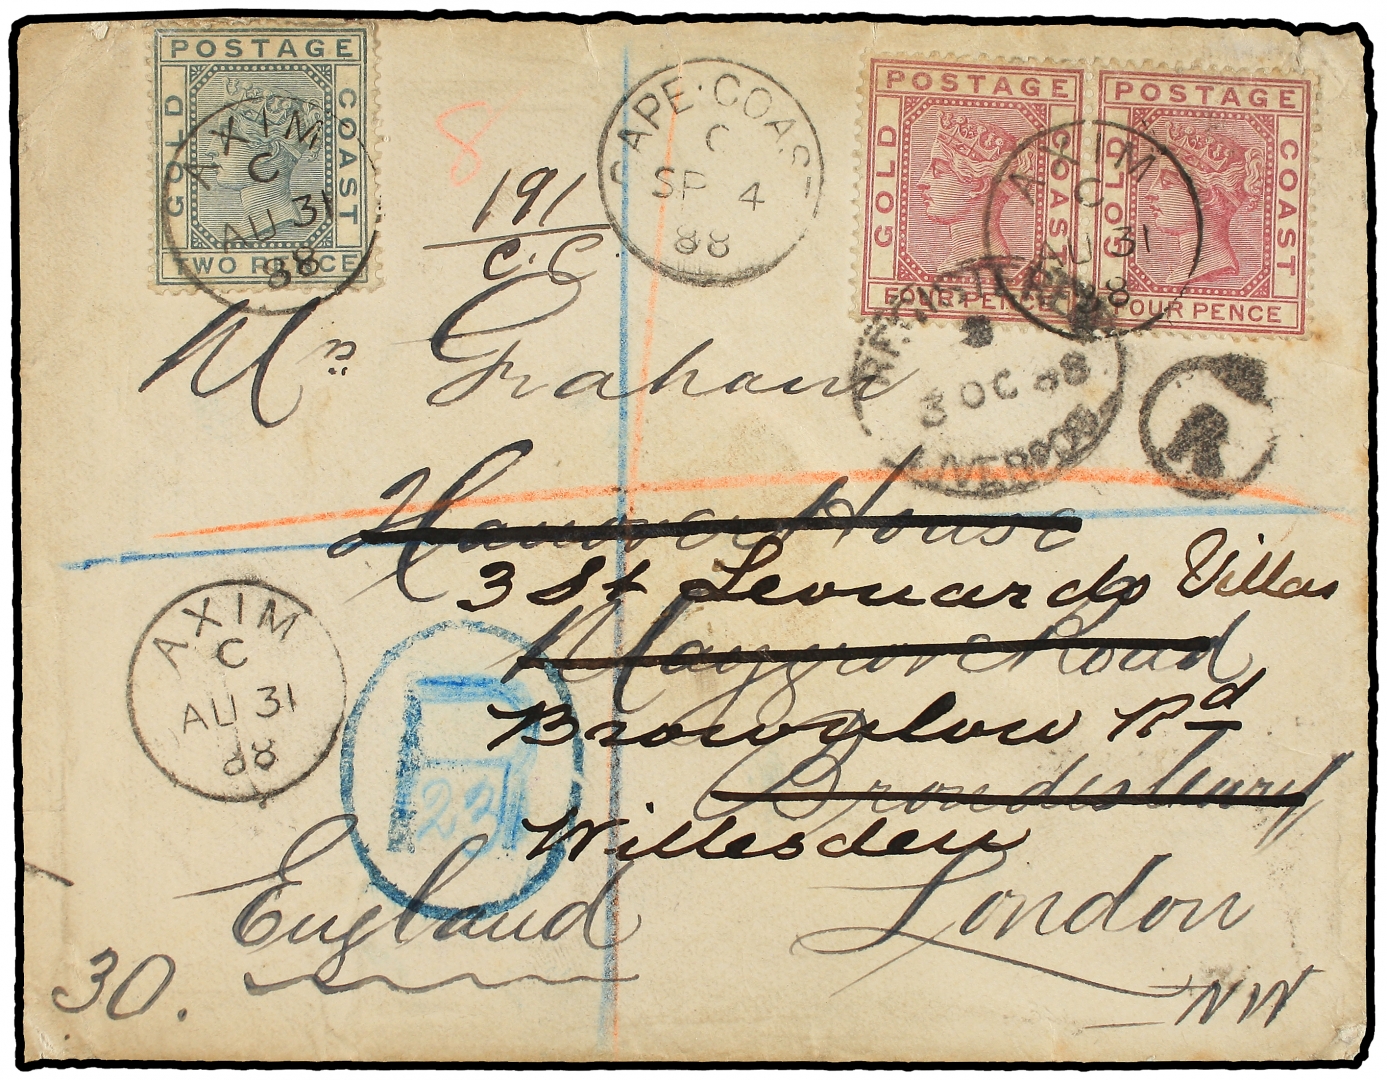 POSTAGE
GOLD COAST
TWO PENCE
AXIM
C
AU 31
88
8
191
C.C.
CAPE COAST
C
SP 4
88
POSTAGE
GOLD COAST
FOUR PENCE
POSTAGE
GOLD COAST
FOUR PENCE
AXIM
C
AU 31
88
LIVERPOOL
3 OC 88
R
Mrs Graham
Hanover House
3 St Leonards Villas
Maygrove Road
Brownlow Rd
Brondesbury
Willesden
London
N W
England
AXIM
C
AU 31
88
R
23
30.